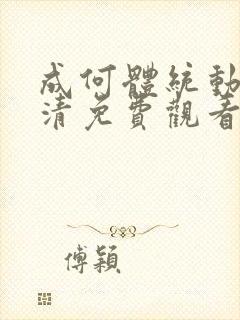 成何體統動
清免費觀看
傅穎